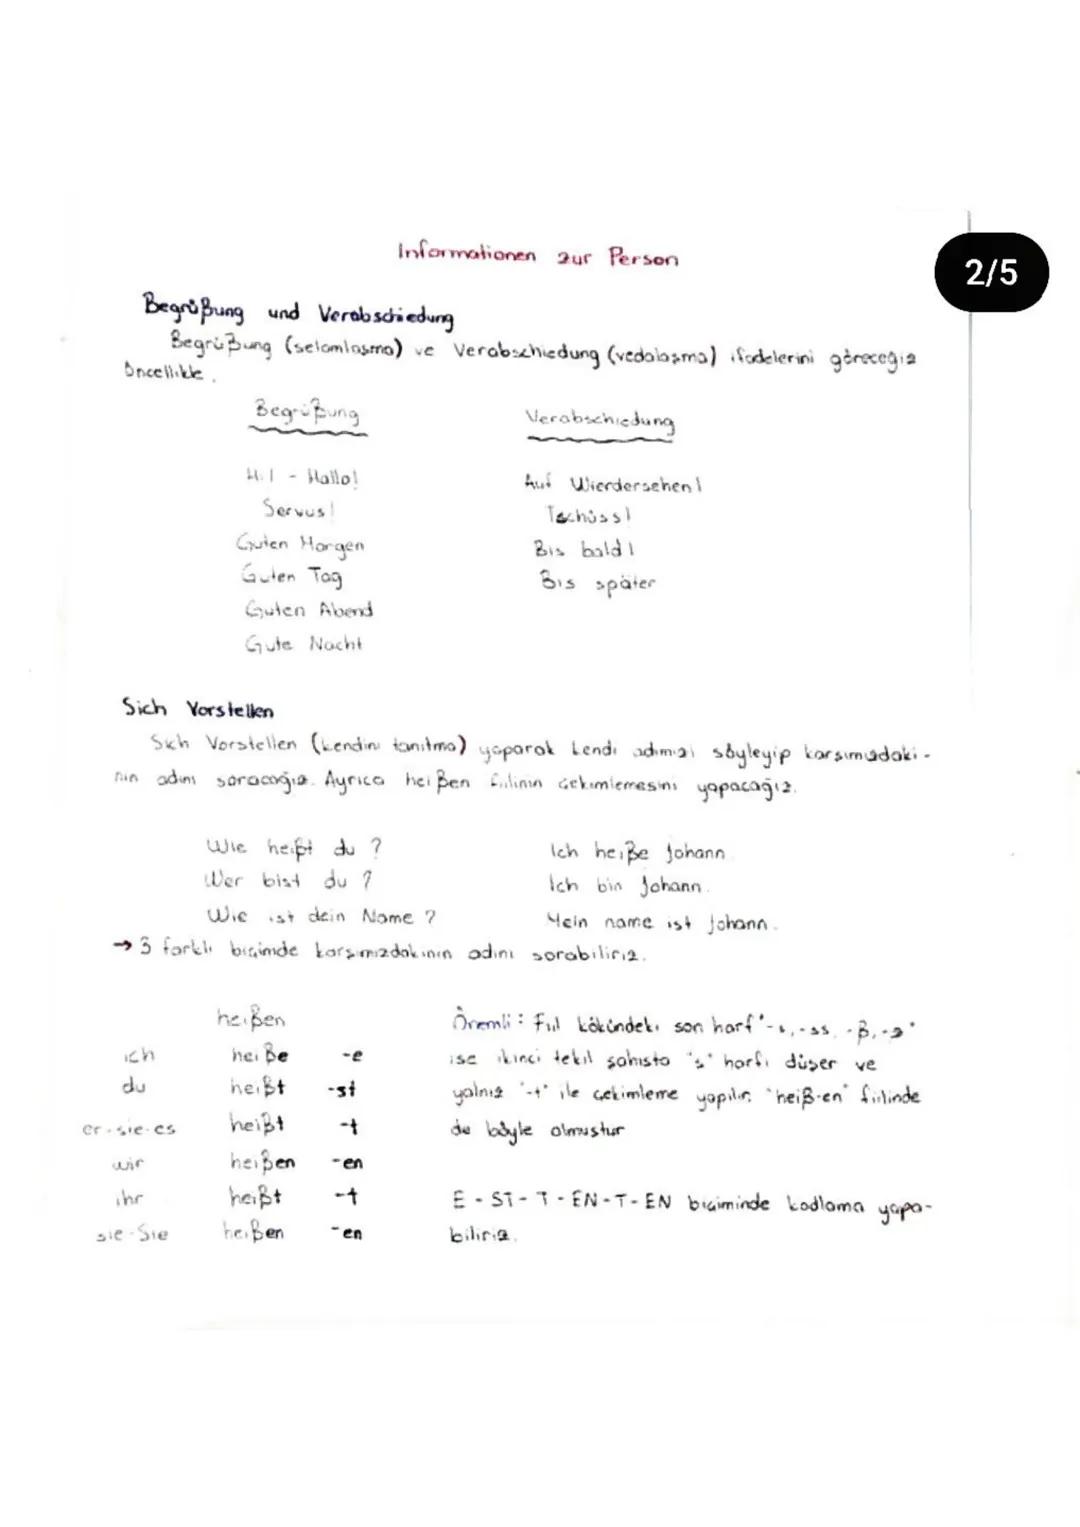 Informationen zur Person
2/5
Begrüßung und Verabschiedung
Begrüßung (selamlaşma) ve Verabschiedung (vedalaşma) ifadelerini göreceğiz
öncelikle.
Begrüßung Verabschiedung
Hi! - Hallo! Auf Wierdersehen!
Servus! Tschüss!
Guten Morgen Bis bald!
Guten Tag Bis später
Guten Abend
Gute Nacht
Sich Vorstellen
Sich Vorstellen (kendini tanıtma) yaparak kendi adımızı söyleyip karşımızdaki-
nin adını soracağız. Ayrıca heißen fiilinin çekimlemesini yapacağız.
Wie heißt du ? Ich heiße Johann.
Wer bist du ? Ich bin Johann.
Wie ist dein Name ? Mein name ist Johann.
→ 3 farklı biçimde karşımızdakinin adını sorabiliriz.
heißen
ich heiße -e
du heißt -st
er-sie-es heißt -t
wir heißen -en
ihr heißt -t
sie-Sie heißen -en
Önemli : Fiil kökündeki son harf "-s, -ss, -ß, -z"
ise ikinci tekil şahısta "s" harfi düşer ve
yalnız "-t" ile çekimleme yapılır. "heiß-en" fiilinde
de böyle olmuştur
E - ST - T - EN - T - EN biçiminde kodlama yapa-
biliriz.